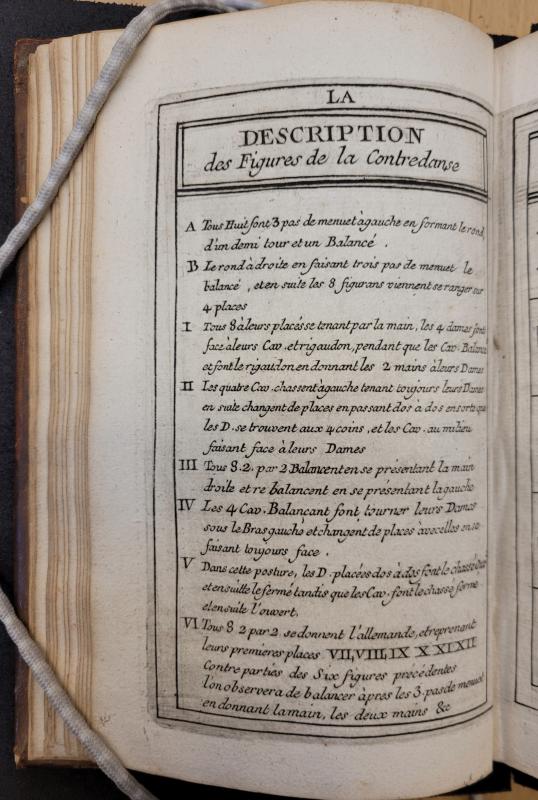 LA
DESCRIPTION
des Figures de la Contredanse
A Tous Huit font 3 pas de menuet à gauche en formant le rond
d'un demi tour et un Balancé.
B Le rond à droite en faisant trois pas de menuet le
balancé, et en suite les 8 figurans viennent se ranger sur
4 places
I Tous 8 à leurs places se tenant par la main, les 4 dames font
face à leurs Cav. et rigaudon, pendant que les Cav. Balance
et font le rigaudon en donnant les 2 mains à leurs Dames
II Les quatre Cav. chassent à gauche tenant toujours leurs Dames
en suite changent de places en passant dos à dos en sorte que
les D. se trouvent aux 4 coins, et les Cav. au milieu
faisant face à leurs Dames
III Tous 8. 2. par 2 Balancent en se présentant la main
droite et re balancent en se présentant la gauche
IV Les 4 Cav. Balancant font tourner leurs Dames
sous le Bras gauche et changent de places avec elles en se
faisant toujours face.
V Dans cette posture, les D. placées dos à dos font le chassé
et ensuitte le fermé tandis que les Cav. font le chassé fermé
et ensuite l'ouvert.
VI Tous 8 2 par 2. se donnent l'allemande, et reprenant
leurs premieres places VII, VIII, IX X XI XII
Contre parties des Six figures précédentes
l'on observera de balancer àpres les 3. pas de menuet
en donnant la main, les deux mains &c